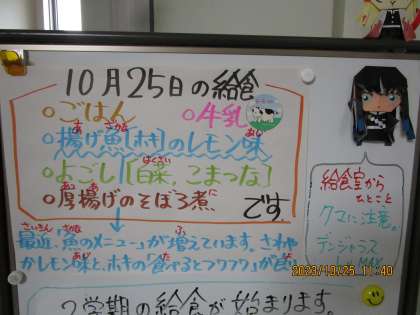 10月25日の給食
○ごはん ○牛乳
○揚げ魚[ホキ]のレモン味
あ ざかな あじ
○よごし[白菜、こまつな]
はくさい
○厚揚げのそぼろ煮です。
あつあ に
さいきん さかな ふ
最近、魚のメニューが増えています。さわや
かレモン味と、ホキの「食べるとフワフワ」が
2学期の給食が始まります。
給食室から
ひとこと
クマに注意。
デンジャラス
2023/10/25 11:40